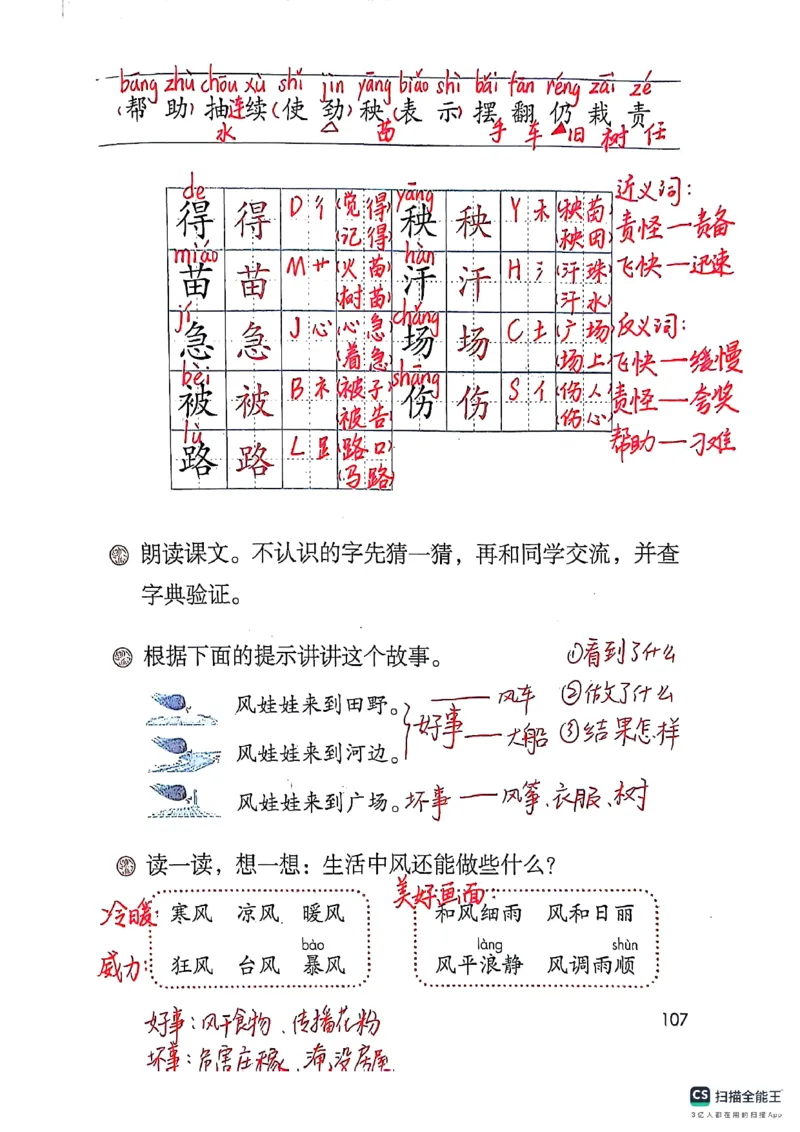 bāng zhù chōu xù shǐ jìn yāng biǎo shì bǎi fān réng zāi zé
(帮 助) 抽 连续 (使 劲) 秧 (表 示) 摆 翻 仍 栽 责
水 苗 手 车 旧 树 任
de yāng
得 得 D 彳 (觉得) 秧 秧 Y 禾 (秧苗) 近义词:
(记得) (秧田) 责怪—责备
miáo hàn
苗 苗 M 艹 (火苗) 汗 汗 H 氵 (汗珠) 飞快—迅速
(树苗) (汗水)
jí chǎng
急 急 J 心 (心急) 场 场 C 土 (广场) 反义词:
(着急) (场上) 飞快—缓慢
bèi shāng
被 被 B 衤 (被子) 伤 伤 S 亻 (伤人) 责怪—夸奖
(被告) (伤心)
lù 帮助—刁难
路 路 L 𧾷 (路口)
(马路)
朗读课文。不认识的字先猜一猜，再和同学交流，并查
字典验证。
根据下面的提示讲讲这个故事。 ①看到了什么
风娃娃来到田野。 好事 —— 风车 ②做了什么
风娃娃来到河边。 —— 大船 ③结果怎样
风娃娃来到广场。坏事 —— 风筝、衣服、树
读一读，想一想：生活中风还能做些什么？
美好画面:
冷暖: 寒风 凉风 暖风 和风细雨 风和日丽
bào làng shùn
威力: 狂风 台风 暴风 风平浪静 风调雨顺
好事:风干食物、传播花粉
坏事:危害庄稼、淹没房屋
107
CS 扫描全能王
3亿人都在用的扫描App